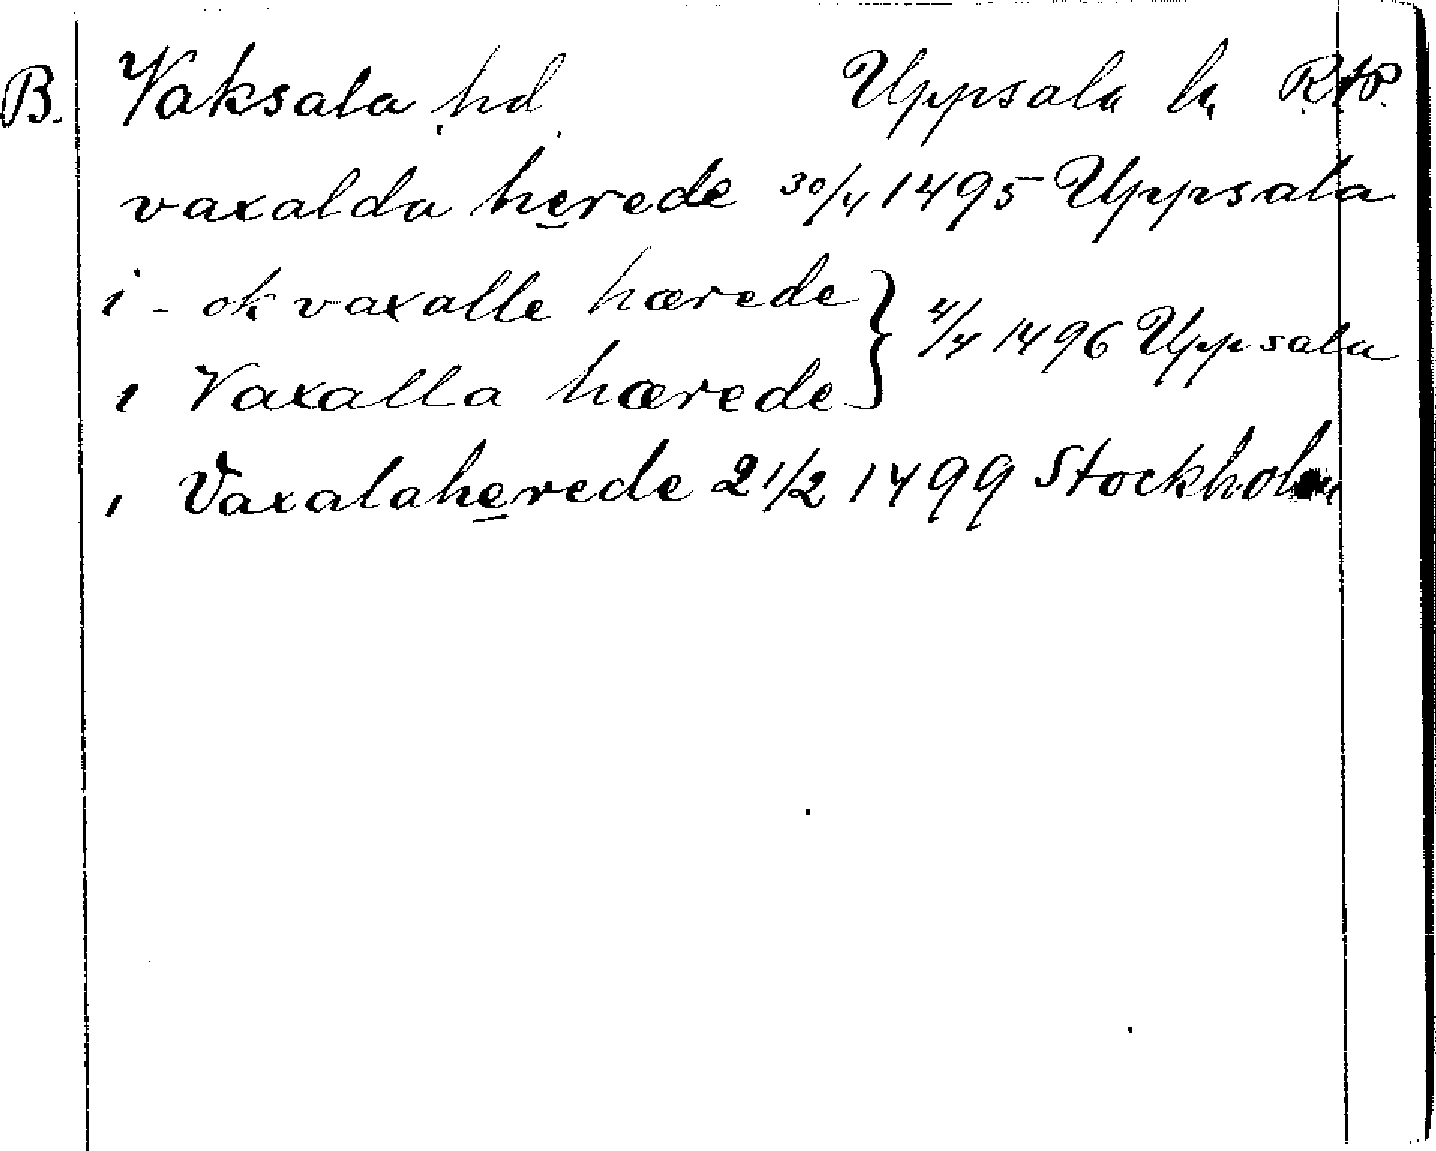 B. Vaksala hd. Uppsala l. RAP.
vaxalda herede 30/4 1495 Uppsala
i - ok vaxalle hærede } 4/4 1496 Uppsala
i Vaxalla hærede
i Vaxalaherede 21/2 1499 Stockholm